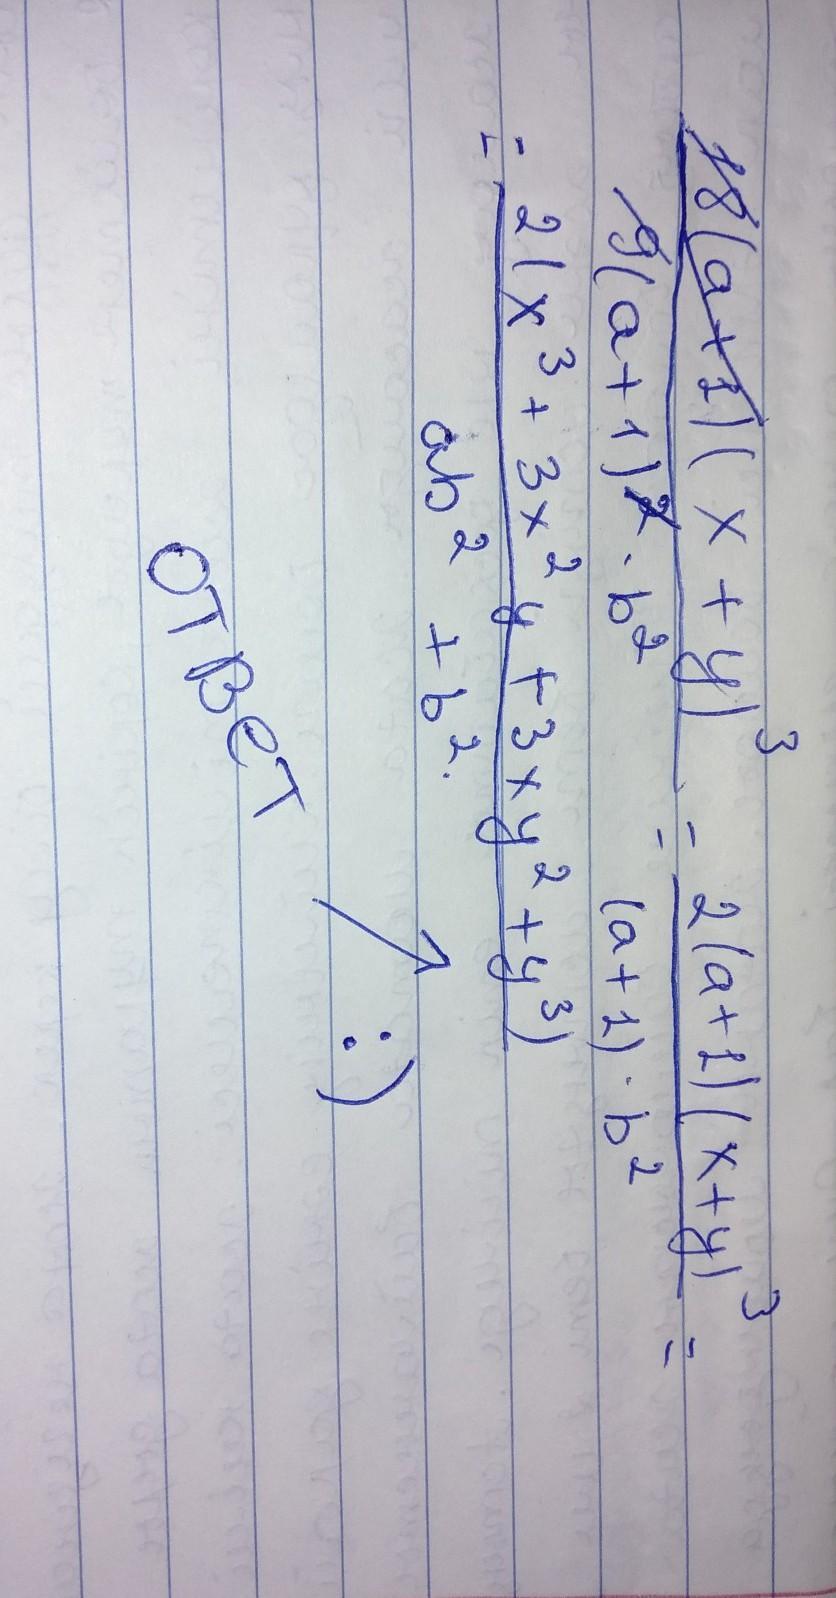 18(a+1)(x+y)³ / 9(a+1)2 · b² = 2(a+1)(x+y)³ / (a+1) · b² =
= 2(x³ + 3x²y + 3xy² + y³) / ab² + b².
ответ → :)